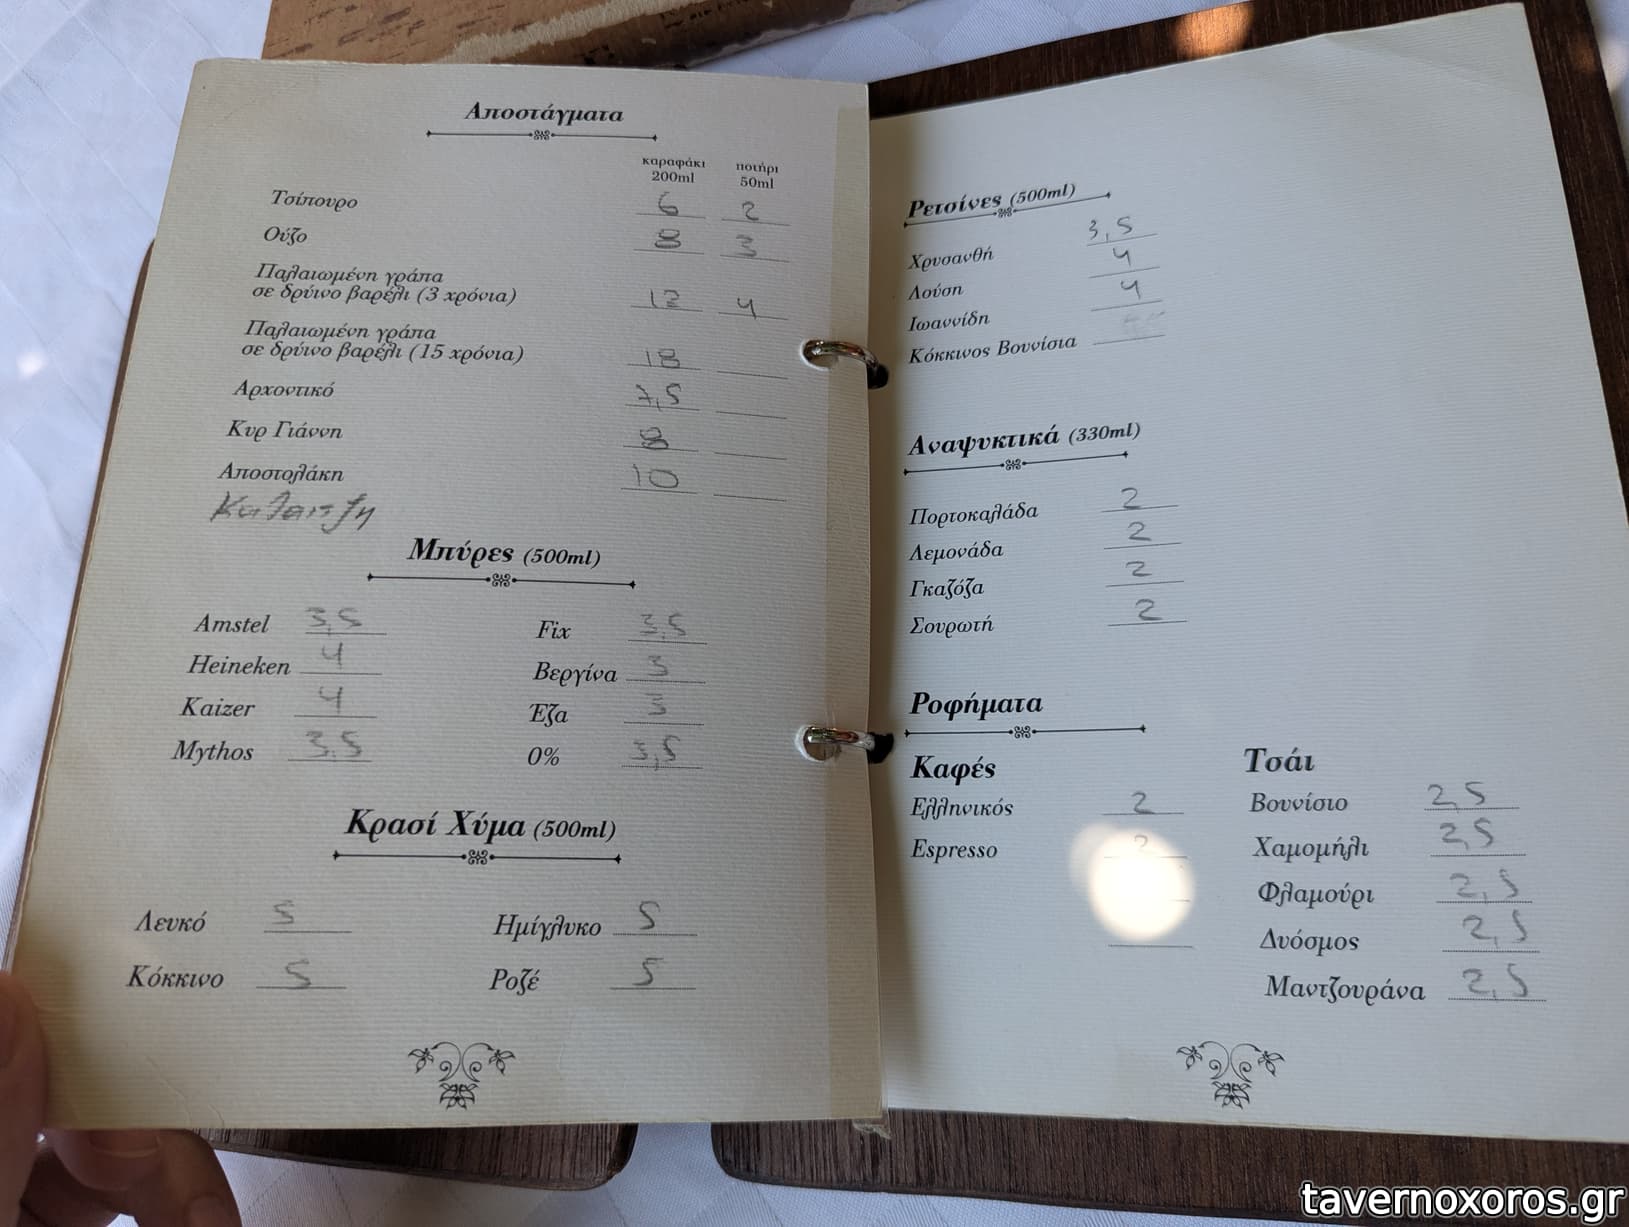 Αποστάγματα
καραφάκι 200ml ποτήρι 50ml
Τσίπουρο 6 2
Ούζο 8 3
Παλαιωμένη γράπα
σε δρύινο βαρέλι (3 χρόνια) 12 4
Παλαιωμένη γράπα
σε δρύινο βαρέλι (15 χρόνια) 18
Αρχοντικό 7,5
Κυρ Γιάννη 8
Αποστολάκη 10
Μπύρες (500ml)
Amstel 3,5 Fix 3,5
Heineken 4 Βεργίνα 3
Kaizer 4 Έζα 3
Mythos 3,5 0% 3,5
Κρασί Χύμα (500ml)
Λευκό 5 Ημίγλυκο 5
Κόκκινο 5 Ροζέ 5
Ρετσίνες (500ml)
Χρυσανθή 3,5
Λούση 4
Ιωαννίδη 4
Κόκκινος Βουνίσια
Αναψυκτικά (330ml)
Πορτοκαλάδα 2
Λεμονάδα 2
Γκαζόζα 2
Σουρωτή 2
Ροφήματα
Καφές
Ελληνικός 2
Espresso 2
Τσάι
Βουνίσιο 2,5
Χαμομήλι 2,5
Φλαμούρι 2,5
Δυόσμος 2,5
Μαντζουράνα 2,5
tavernoxoros.gr